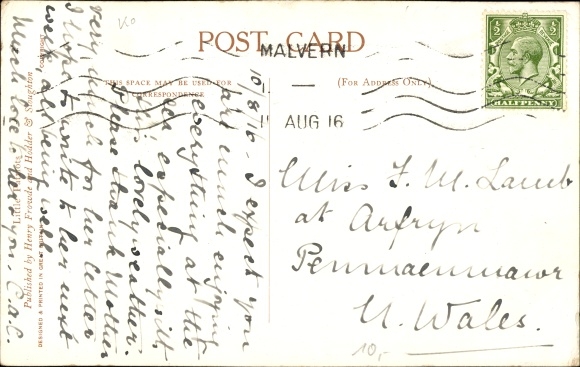 POST CARD
THIS SPACE MAY BE USED FOR
CORRESPONDENCE
(FOR ADDRESS ONLY)
MALVERN
11 AUG 16
½ ½
HALFPENNY
10/8/16. I expect you
are much enjoying
everything at the
sea especially with
this lovely weather.
Please thank Mother
very much for her letter
I hope to write to her next
week all being well
Much love to dear you, C.a.C.
Miss F. M. Lamb
at Arfryn
Penmaenmawr
N. Wales.
10,-
Published by Henry Frowde and Hodder & Stoughton
DESIGNED & PRINTED IN GREAT BRITAIN
COPYRIGHT